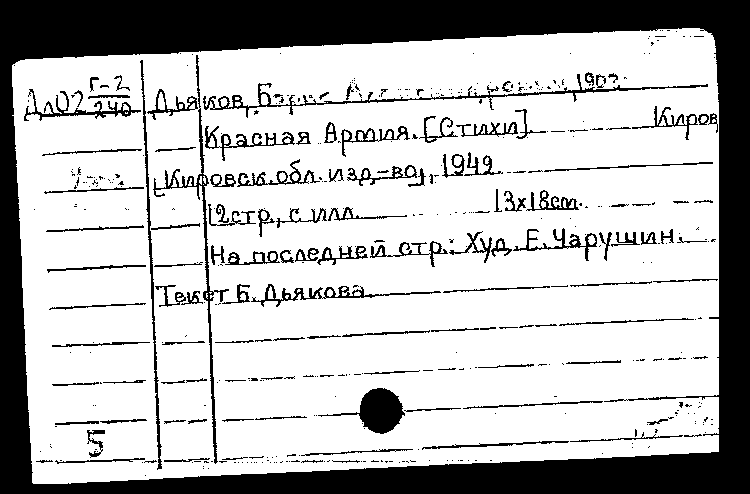 Дл02 Г-2/240 Дьяков, Борис Александрович, 1902-
Красная Армия. [Стихи]. Киров
[Кировск. обл. изд.-во], 1942.
12стр., с илл. 13х18см.
На последней стр.: Худ. Е. Чарушин.
Текст Б. Дьякова.
5